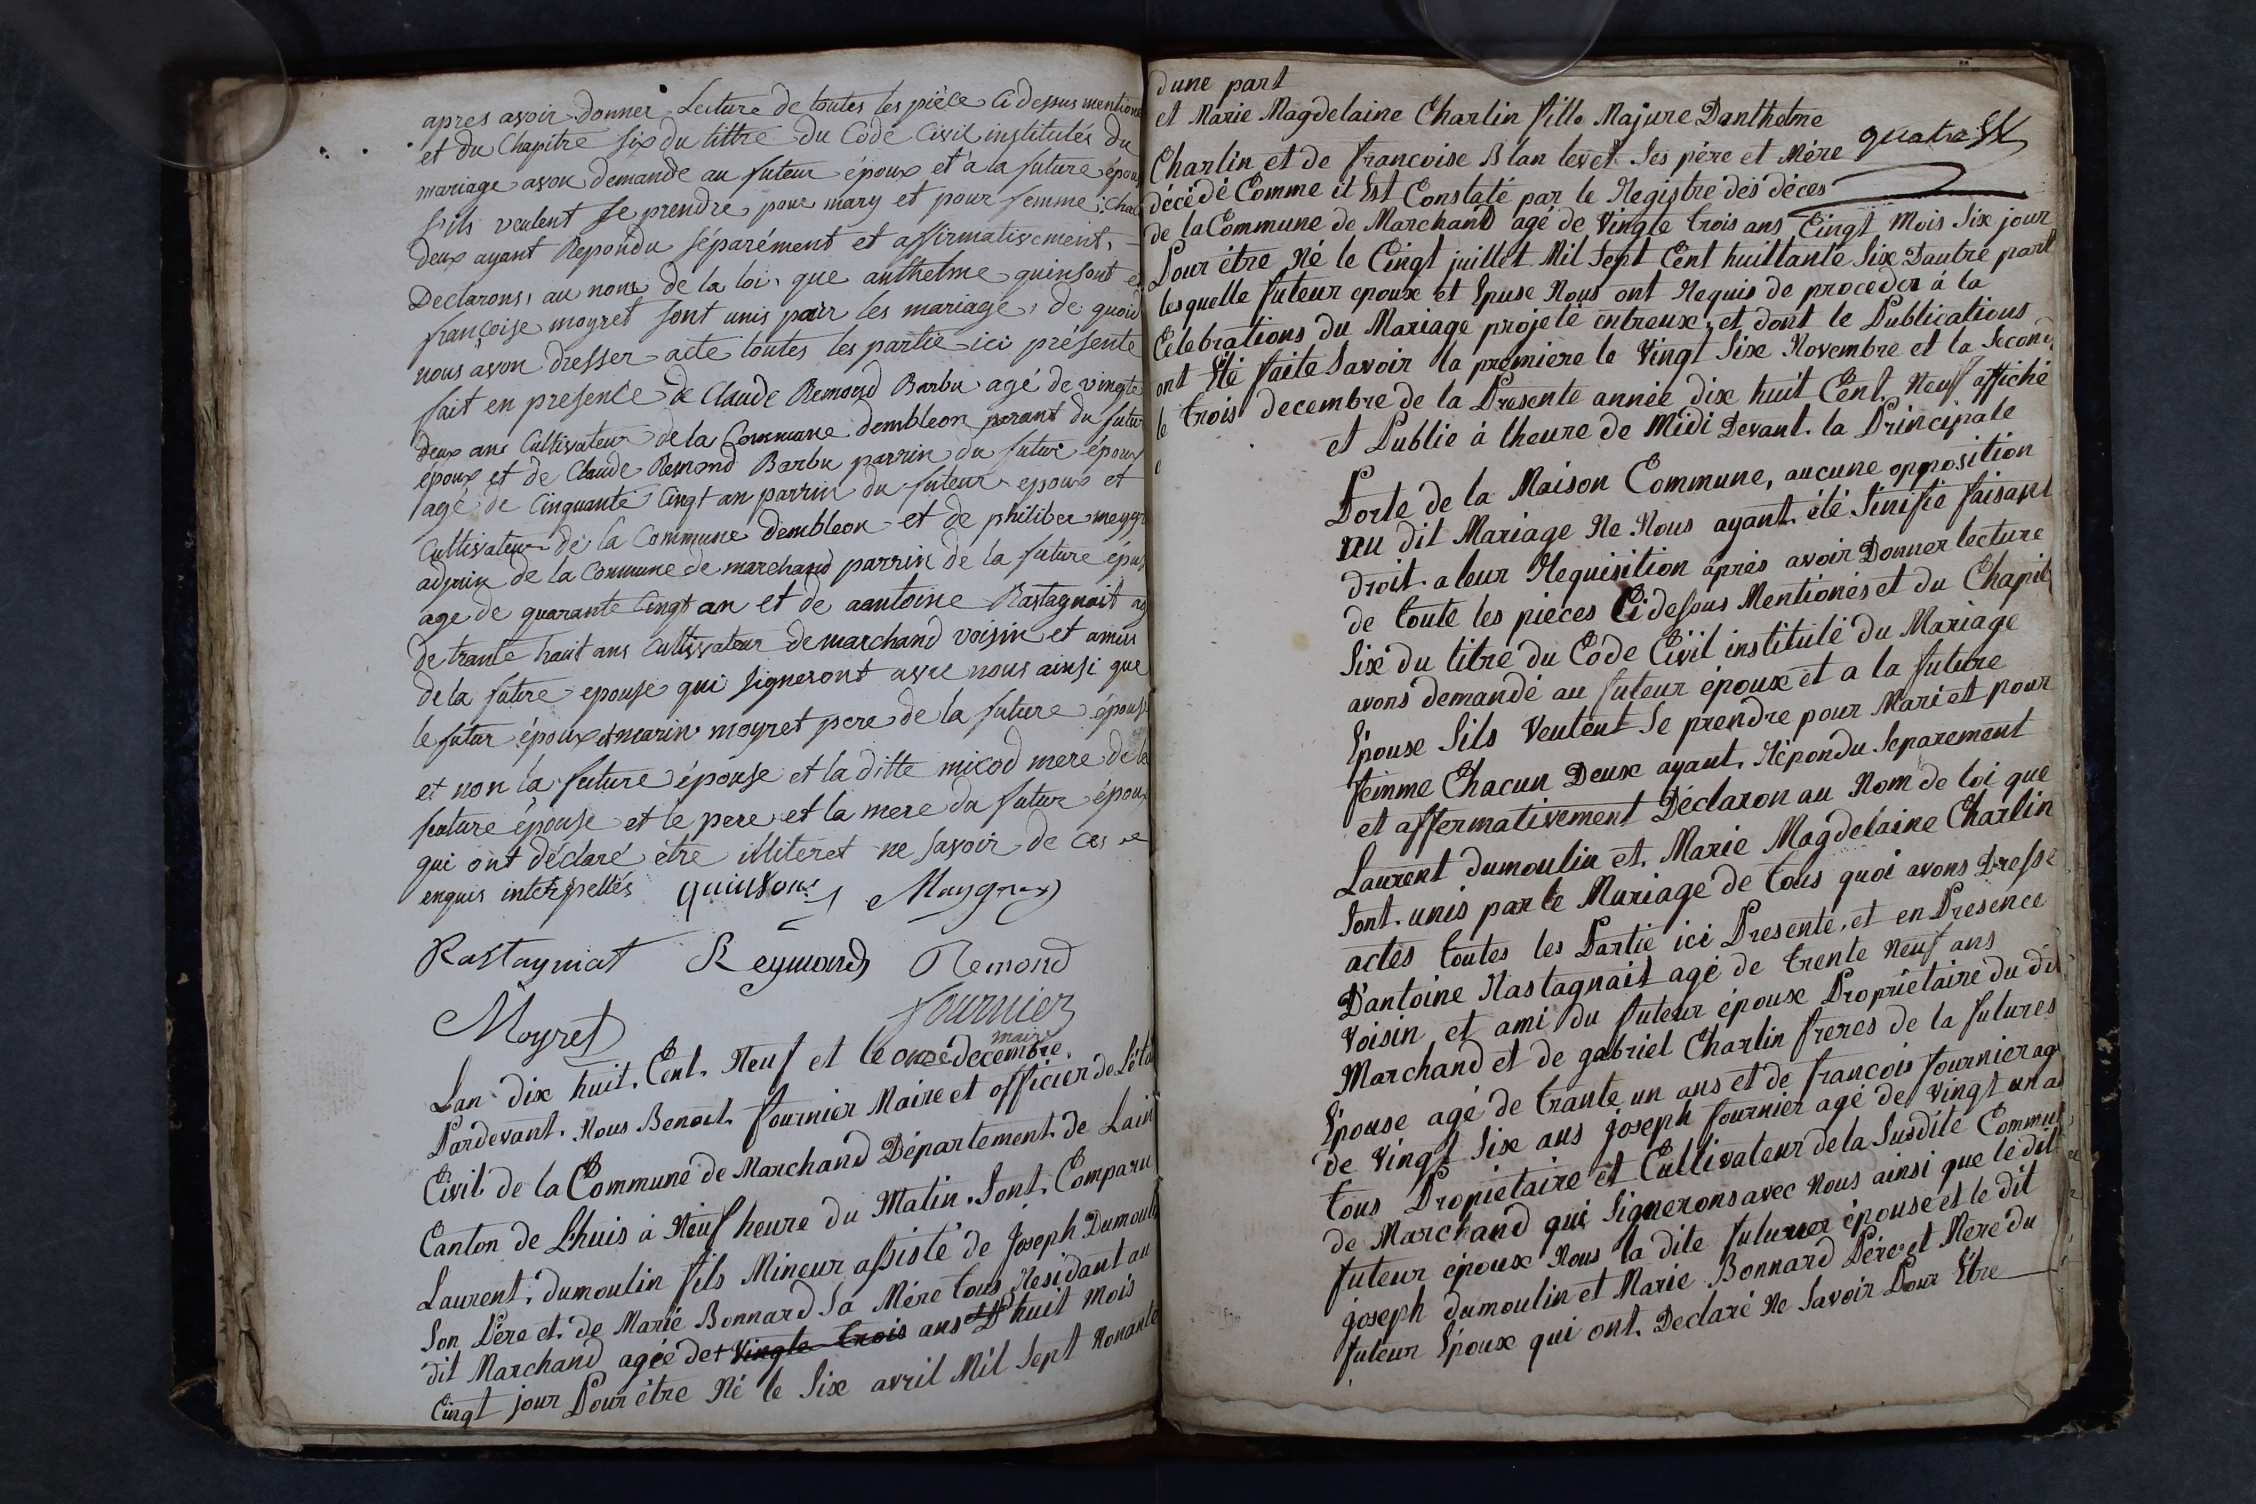 apres avoir donner Lecture de toutes les pièce ci dessus mentione
et du Chapitre six du tittre du Code Civil institulés du
mariage avon demande au futeur époux et a la future épous
s'ils veulent se prendre pour mary et pour femme : chac
deux ayant Repondu séparément et affirmativement,
Declarons, au nom de la loi, que anthelme quinsont et
françoise moyret sont unis pair les mariage, de quoi
nous avon dresser acte toutes les partie ici présente
fait en presence de Claude Remond Barbu agé de vingte
deux ans Cultivateur de la Commune dembleon parant du futur
époux et de Claude Remond Barbu parrin du futur époux
agé de Cinquante Cingt an parrin du futeur epoux et
Cultivateur de la Commune dembleon et de philiber meygr
adjoin de la Commune de marchand parrin de la future épus
age de quarante Cingt an et de aantoine Rastagnait ag
de trante huit ans Cultivateur de marchand voisin et amis
de la future epouse qui signeront avec nous ainsi que
le futur époux et marin moyret pere de la future épouse
et non la future épouse et la ditte micod mere de la
future épouse et le pere et la mere du futur époux
qui ont déclaré etre illiteret ne savoir de ces
enquis interpellés quinson Meygret
Rastaynat Reymond Remond
Moyret fournier
maire
Lan dix huit. Cent. Neuf et le onze decembre.
Pardevant. Nous Benoit. fournier Maire et officier de L'éta
Civil de la Commune de Marchand Département. de Lain
Canton de Lhuis à Neuf heure du Matin. Sont. Comparu
Laurent. dumoulin fils Mineur assisté de Joseph Dumouli
Son Pére et. de Marie Bonnard Sa Mére tous Residant au
dit Marchand agée de + Vingte trois ans huit mois
Cingt jour Pour être Né le Six avril Mil Sept Nonante
dune part
et Marie Magdelaine Charlin fille Majure Danthelme
Charlin et de francoise Blan levet Ses pére et Mére quatre
décédé Comme it Est Constaté par le Registre des déces
de la Commune de Marchand agé de Vingte trois ans Cingt Mois Six jour
Pour étre Né le Cingt juillet Mil Sept Cent huittante Six Dautre part
lesquelle futeur epoux et Epuse Nous ont Requis de proceder à la
Célebrations du Mariage projeté entreux. et dont le Publications
ont Eté faite Savoir la premiere le Vingt Six Novembre et la Second
le trois decembre de la Presente année dix huit Cent. Neuf affiché
et Publie à lheure de Midi Devant. la Principale
Porte de la Maison Commune, aucune opposition
au dit Mariage Ne Nous ayant. été Sinifié faisant
droit. a leur Requisition aprés avoir Donner lecture
de toute les pieces Ci desous Mentionés et du Chapit
Six du titre du Code Civil institulé du Mariage
avons demandé au futeur époux et a la future
Epouse Sils Veulent Se prendre pour Mari et pour
femme Chacun Deux ayant. Répondu Separement
et affermativement Déclaron au Nom de loi que
Laurent dumoulin et. Marie Magdelaine Charlin
Sont. unis par le Mariage de tous quoi avons Dresse
actes toutes les Partie ici Presente. et en Presence
D'antoine Rastagnait agé de trente Neuf ans
Voisin et ami du futeur époux Propriétaire du dit
Marchand et de gabriel Charlin freres de la futures
Epouse agé de trante un ans et de francois fournier ag
de Vingt Six ans joseph fournier agé de Vingt un a
tous Propietaire et Cultivateur de la Susdite Commun
de Marchand qui Signerons avec Nous ainsi que le dit
futeur époux Nous la dite future épouse et le dit
joseph dumoulin et Marie Bonnard Pére et Mere du
futeur Epoux qui ont. Declaré Ne Savoir Pour Etre